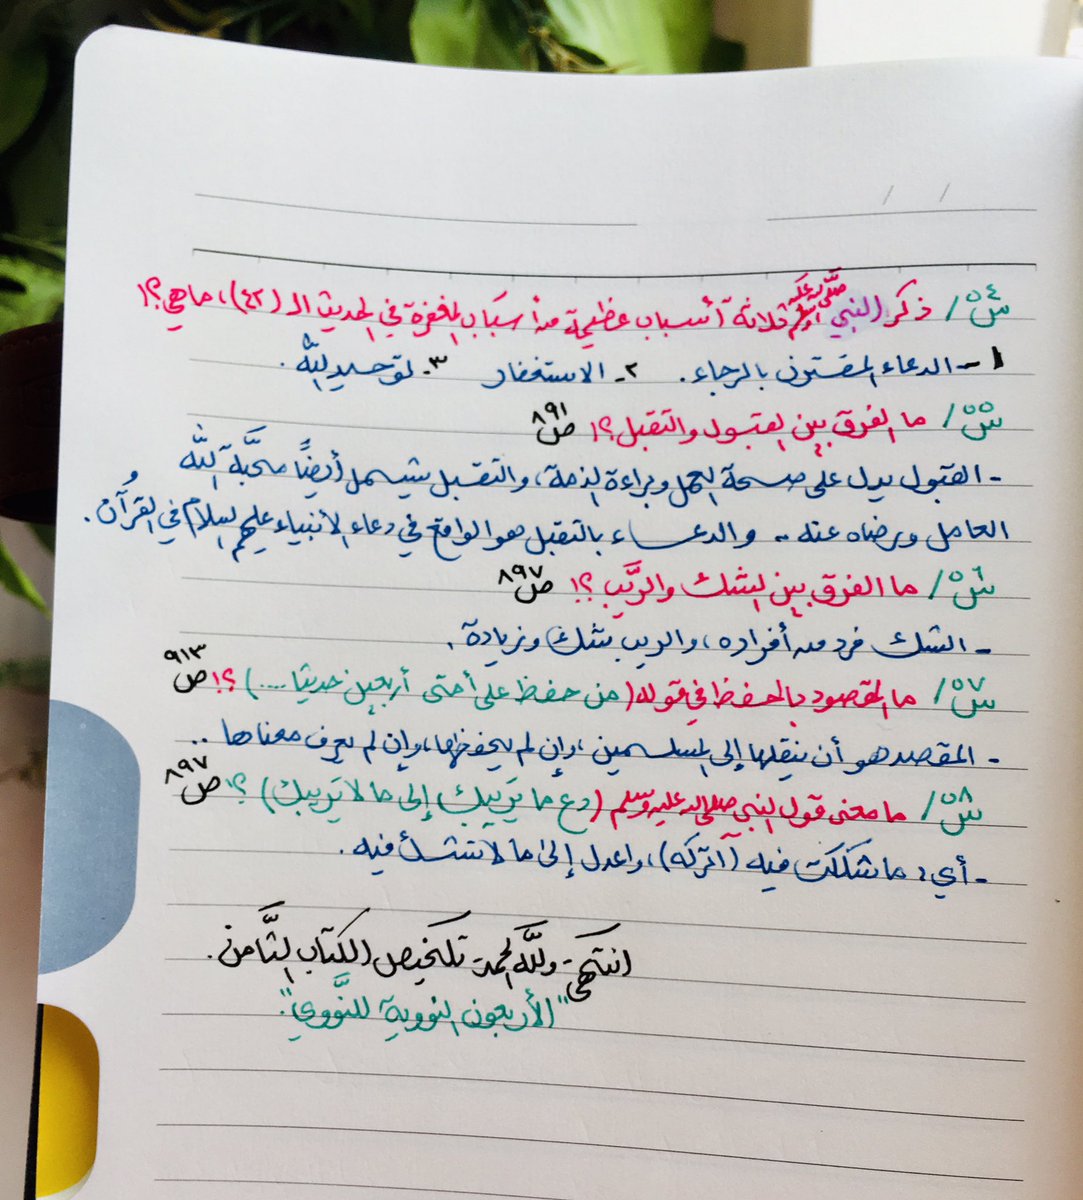 س٥٤/ ذكر النبي صلى الله عليه وسلم ثلاثة أسباب عظيمة من أسباب المغفرة في الحديث الـ (٤٢)، ما هي؟!
١- الدعاء المقترن بالرجاء. ٢- الاستغفار ٣- توحيد الله.
س٥٥/ ما الفرق بين القبول والتقبل؟! ص٨٩١
- القبول يدل على صحة العمل وبراءة الذمة، والتقبل يشمل أيضًا محبَّة الله
العامل ورضاه عنه.. والدعاء بالتقبل هو الواقع في دعاء الأنبياء عليهم السلام في القُرآن.
س٥٦/ ما الفرق بين الشك والرَّيب؟! ص٨٩٧
- الشك فرد من أفراده، والريب شك وزيادة.
س٥٧/ ما المقصود بالحفظ في قوله (من حفظ على أمتي أربعين حديثا....)؟! ص٩١٣
- المقصد هو أن ينقلها إلى المسلمين، وإن لم يحفظها، وإن لم يعرف معناها..
س٥٨/ ما معنى قول النبي صلى الله عليه وسلم (دع ما يَريبك إلى ما لا يَريبك)؟! ص٨٩٧
- أي: ما شككت فيه (اتركه)، واعدل إلى ما لا تشك فيه.
انتهى وللَّه الحمد تلخيص الكتاب الثَّامن.
"الأربعون النووية للنَّووي".